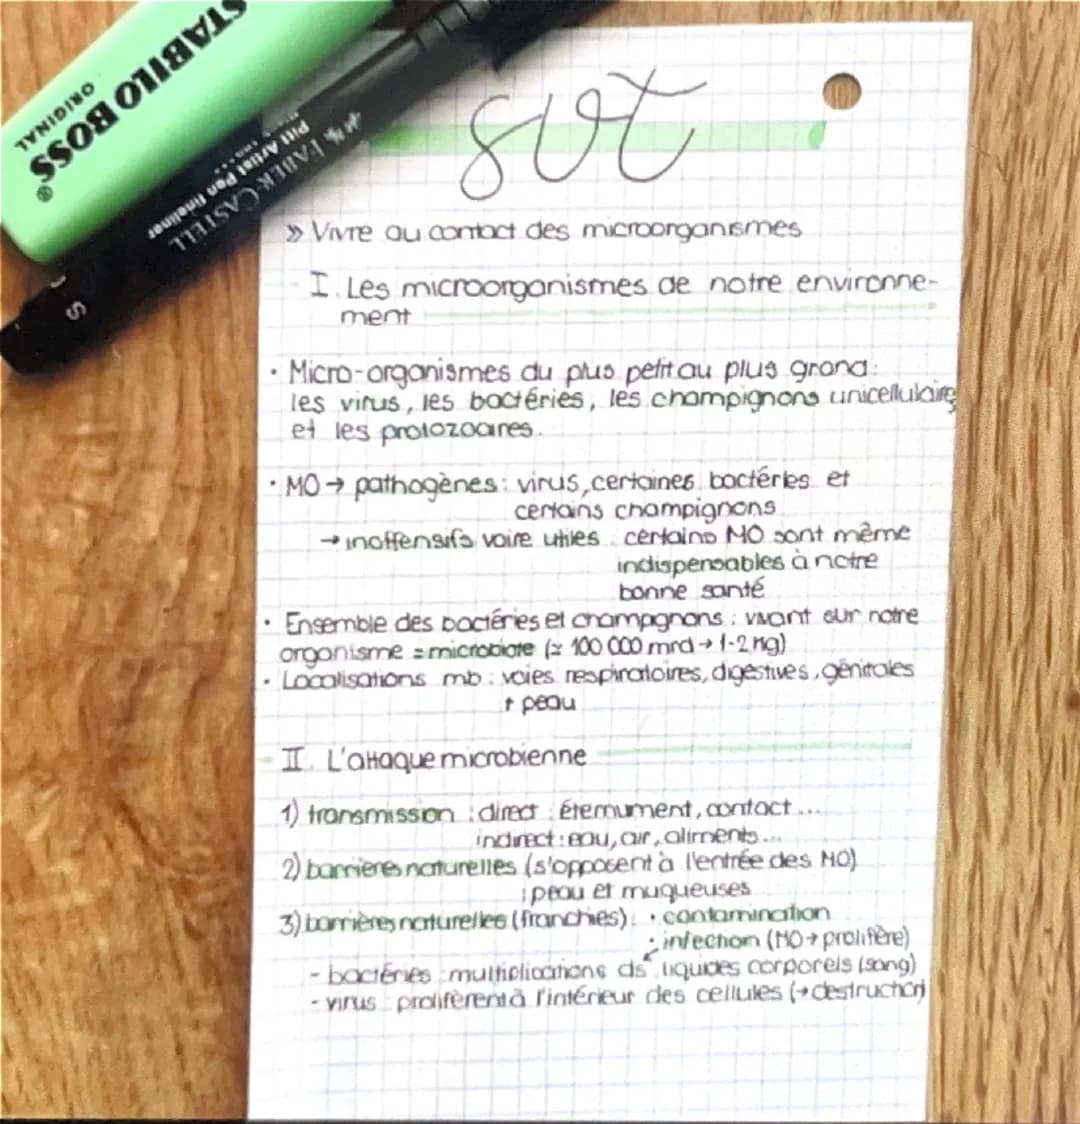 STABILO BOSS®
ORIGINAL
FABER-CASTELL
Pitt Artist Pen fineliner
S
svt
» Vivre au contact des microorganismes
I. Les microorganismes de notre environne-
ment
• Micro-organismes du plus petit au plus grand:
les virus, les bactéries, les champignons unicellulaires
et les protozoaires.
• MO → pathogènes : virus, certaines bactéries et
certains champignons
→ inoffensifs voire utiles : certains MO sont même
indispensables à notre
bonne santé
• Ensemble des bactéries et champignons : vivant sur notre
organisme = microbiote (≃ 100 000 mrd → 1-2 kg)
• Localisations mb : voies respiratoires, digestives, génitales
+ peau
II. L'attaque microbienne
1) transmission : direct : éternument, contact...
indirect : eau, air, aliments...
2) barrières naturelles (s'opposent à l'entrée des MO)
: peau et muqueuses
3) barrières naturelles (franchies) : • contamination
• infection (MO → prolifère)
- bactéries : multiplications ds liquides corporels (sang)
- virus : prolifèrent à l'intérieur des cellules (→ destruction)